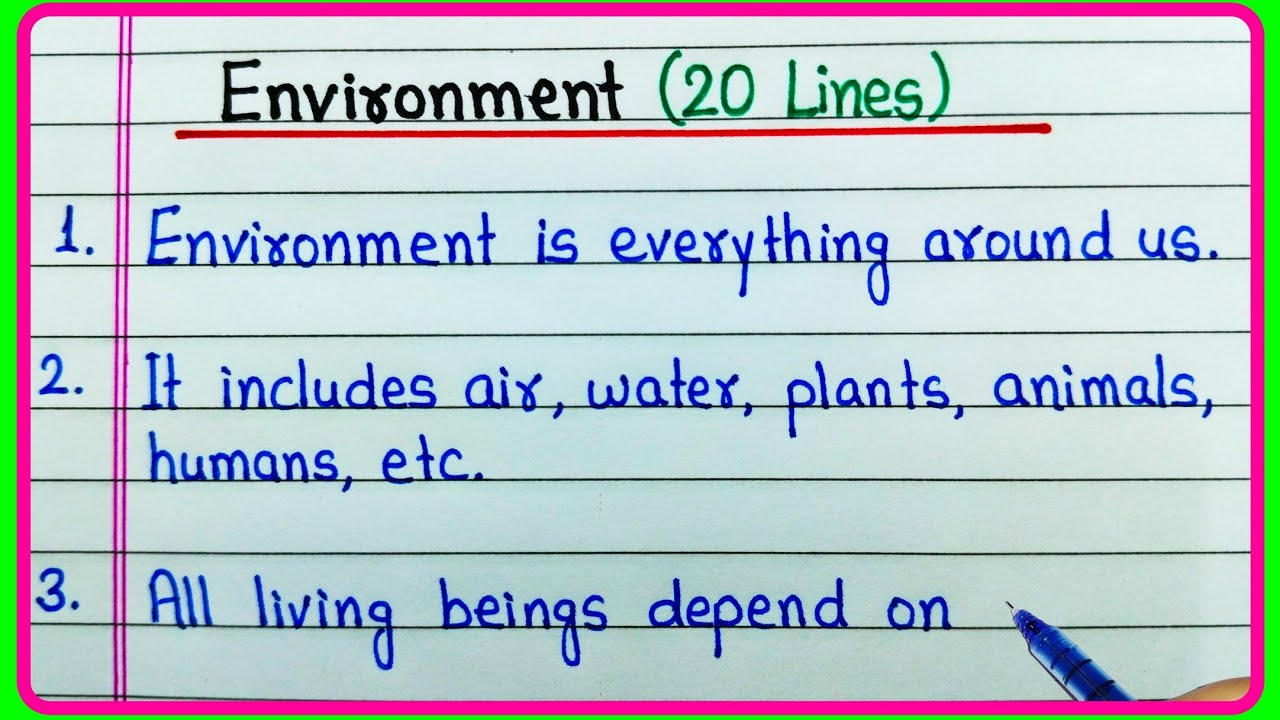 Environment (20 Lines)
1. Environment is everything around us.
2. It includes air, water, plants, animals,
humans, etc.
3. All living beings depend on